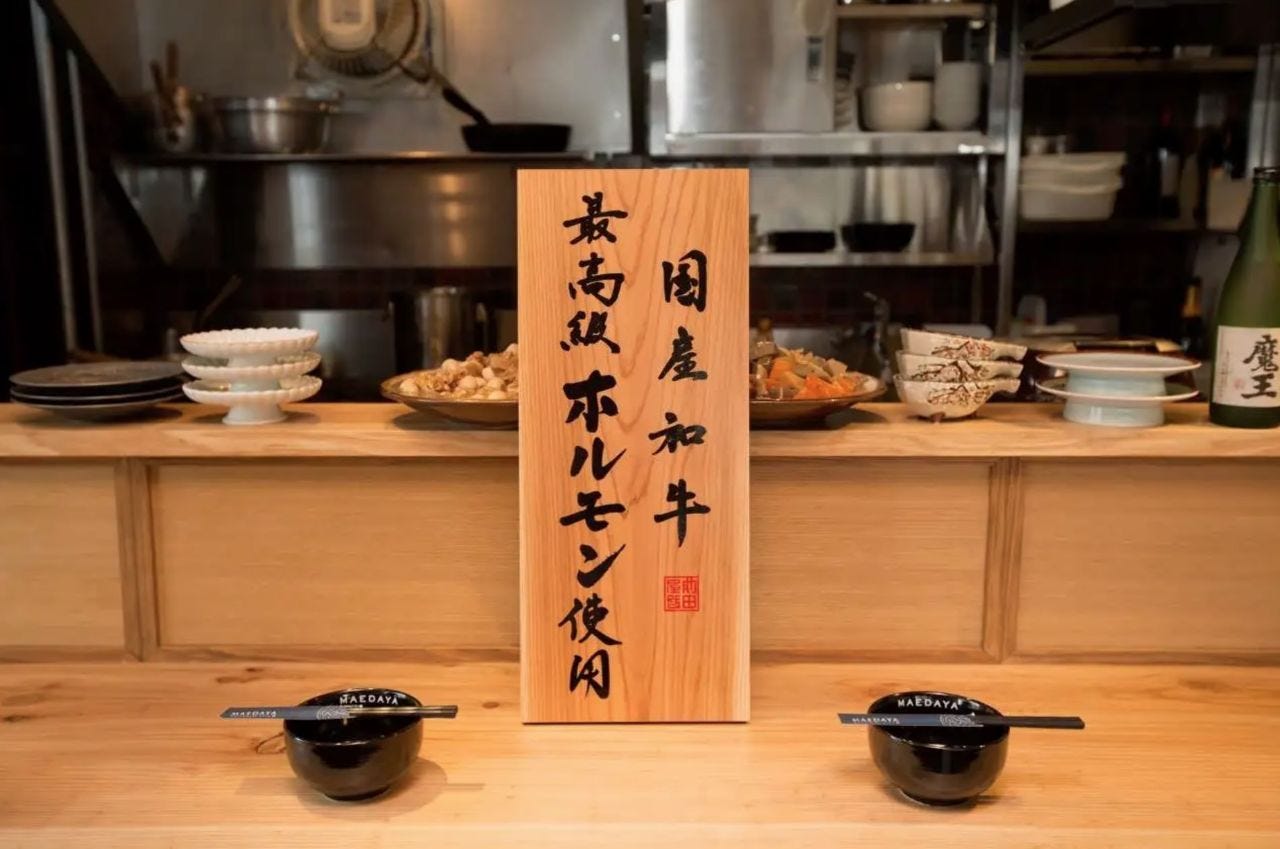 国産和牛
最高級ホルモン使用
前田
屋
魔王
MAEDAYA
MAEDAYA
MAEDAYA